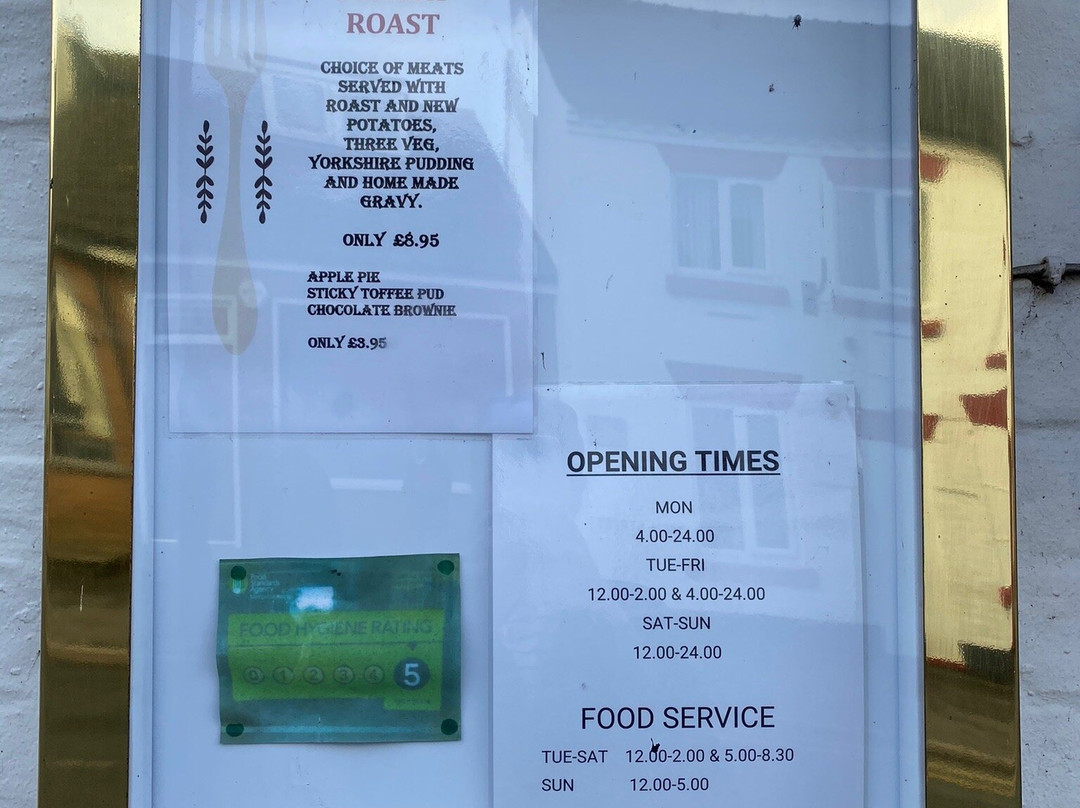 ROAST
CHOICE OF MEATS
SERVED WITH
ROAST AND NEW
POTATOES,
THREE VEG,
YORKSHIRE PUDDING
AND HOME MADE
GRAVY.
ONLY £8.95
APPLE PIE
STICKY TOFFEE PUD
CHOCOLATE BROWNIE
ONLY £3.95
Food
Standards
Agency
FOOD HYGIENE RATING
0 1 2 3 4 5
OPENING TIMES
MON
4.00-24.00
TUE-FRI
12.00-2.00 & 4.00-24.00
SAT-SUN
12.00-24.00
FOOD SERVICE
TUE-SAT 12.00-2.00 & 5.00-8.30
SUN 12.00-5.00